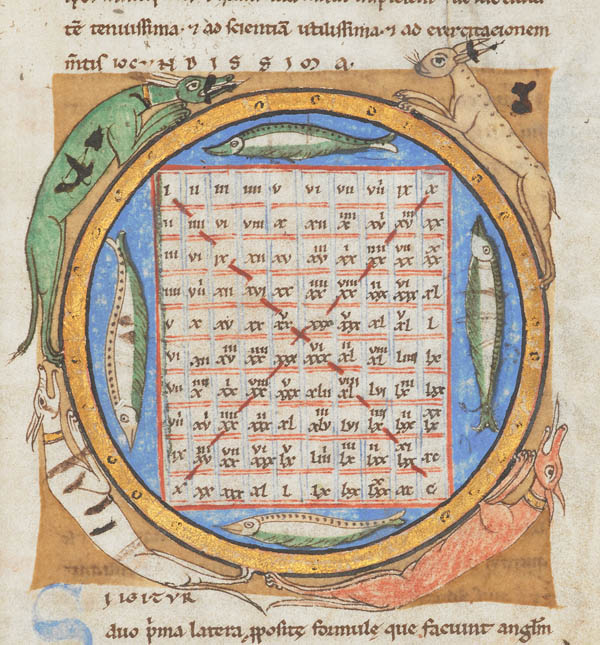 tē tenuissima. & ad scientiā utilissima. & ad exercitacionem
m̄tis iocVNDISSIMA.
i ii iii iiii v vi vii viii ix x
ii iiii vi viii x xii xiiii xvi xviii xx
iii vi ix xii xv xviii xxi xxiiii xxvii xxx
iiii viii xii xvi xx xxiiii xxviii xxxii xxxvi xl
v x xv xx xxv xxx xxxv xl xlv l
vi xii xviii xxiiii xxx xxxvi xlii xlviii liiii lx
vii xiiii xxi xxviii xxxv xlii xlviiii lvi lxiii lxx
viii xvi xxiiii xxxii xl xlviii lvi lxiiii lxxii lxxx
ix xviii xxvii xxxvi xlv liiii lxiii lxxii lxxxi xc
x xx xxx xl l lx lxx lxxx xc c
SI IGITVR
duo p̄ma latera ꝓposite formulę que faciunt anglm̄